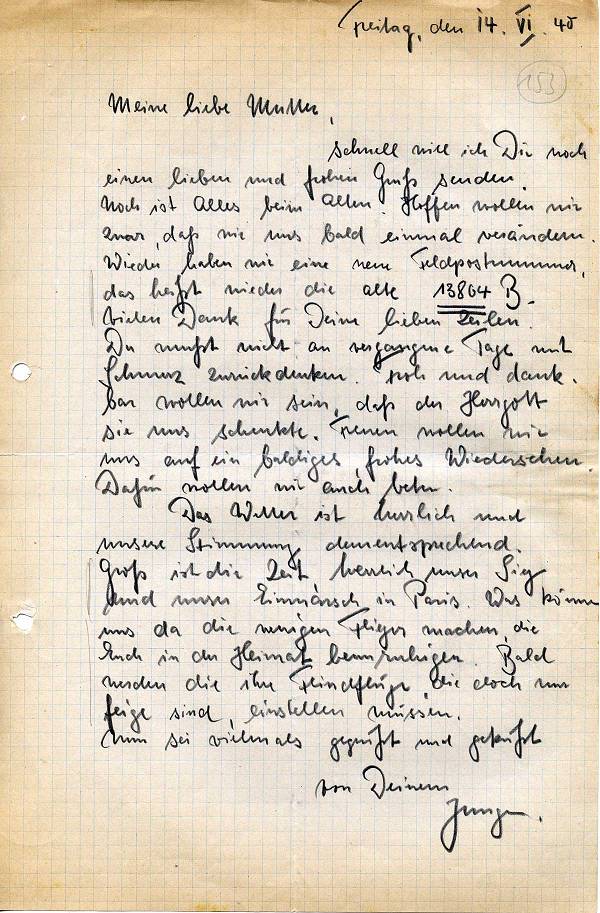 Freitag, den 14. VI. 40
153
Meine liebe Mutter,
schnell will ich Dir noch
einen lieben und frohen Gruß senden.
Noch ist Alles beim Alten. Hoffen wollen wir
zwar, daß wir uns bald einmal verändern.
Wieder haben wir eine neue Feldpostnummer,
das heißt wieder die alte 13864 B.
Vielen Dank für Deine lieben Zeilen.
Du mußt nicht an vergangene Tage mit
Schmerz zurückdenken. Froh und dank-
bar wollen wir sein, daß der Herrgott
sie uns schenkte. Freuen wollen wir
uns auf ein baldiges, frohes Wiedersehen.
Dafür wollen wir auch beten.
Das Wetter ist herrlich und
unsere Stimmung dementsprechend.
Groß ist die Zeit, herrlich unser Sieg
und unser Einmarsch in Paris. Was können
uns da die wenigen Flieger machen, die
Euch in der Heimat beunruhigen. Bald
werden die ihre Feindflüge, die doch nur
feige sind, einstellen müssen.
Nun sei vielmals gegrüßt und geküßt
von Deinem
Jungen.